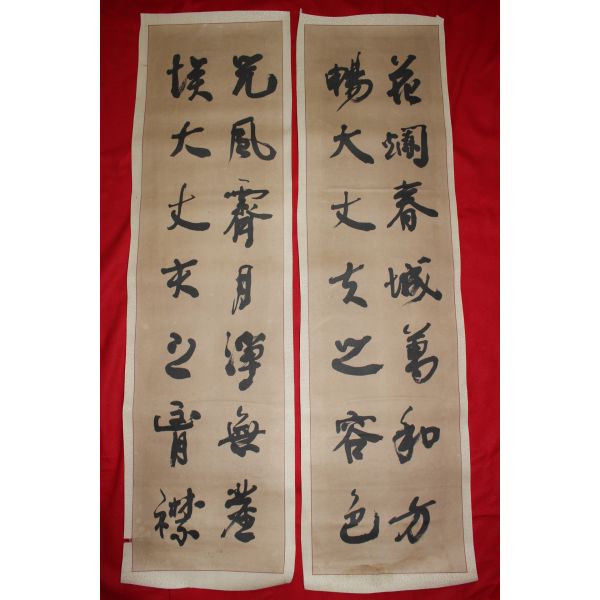 花爛春城萬和方
暢大丈夫之容色
光風霽月淨無塵
埃大丈夫之胷襟